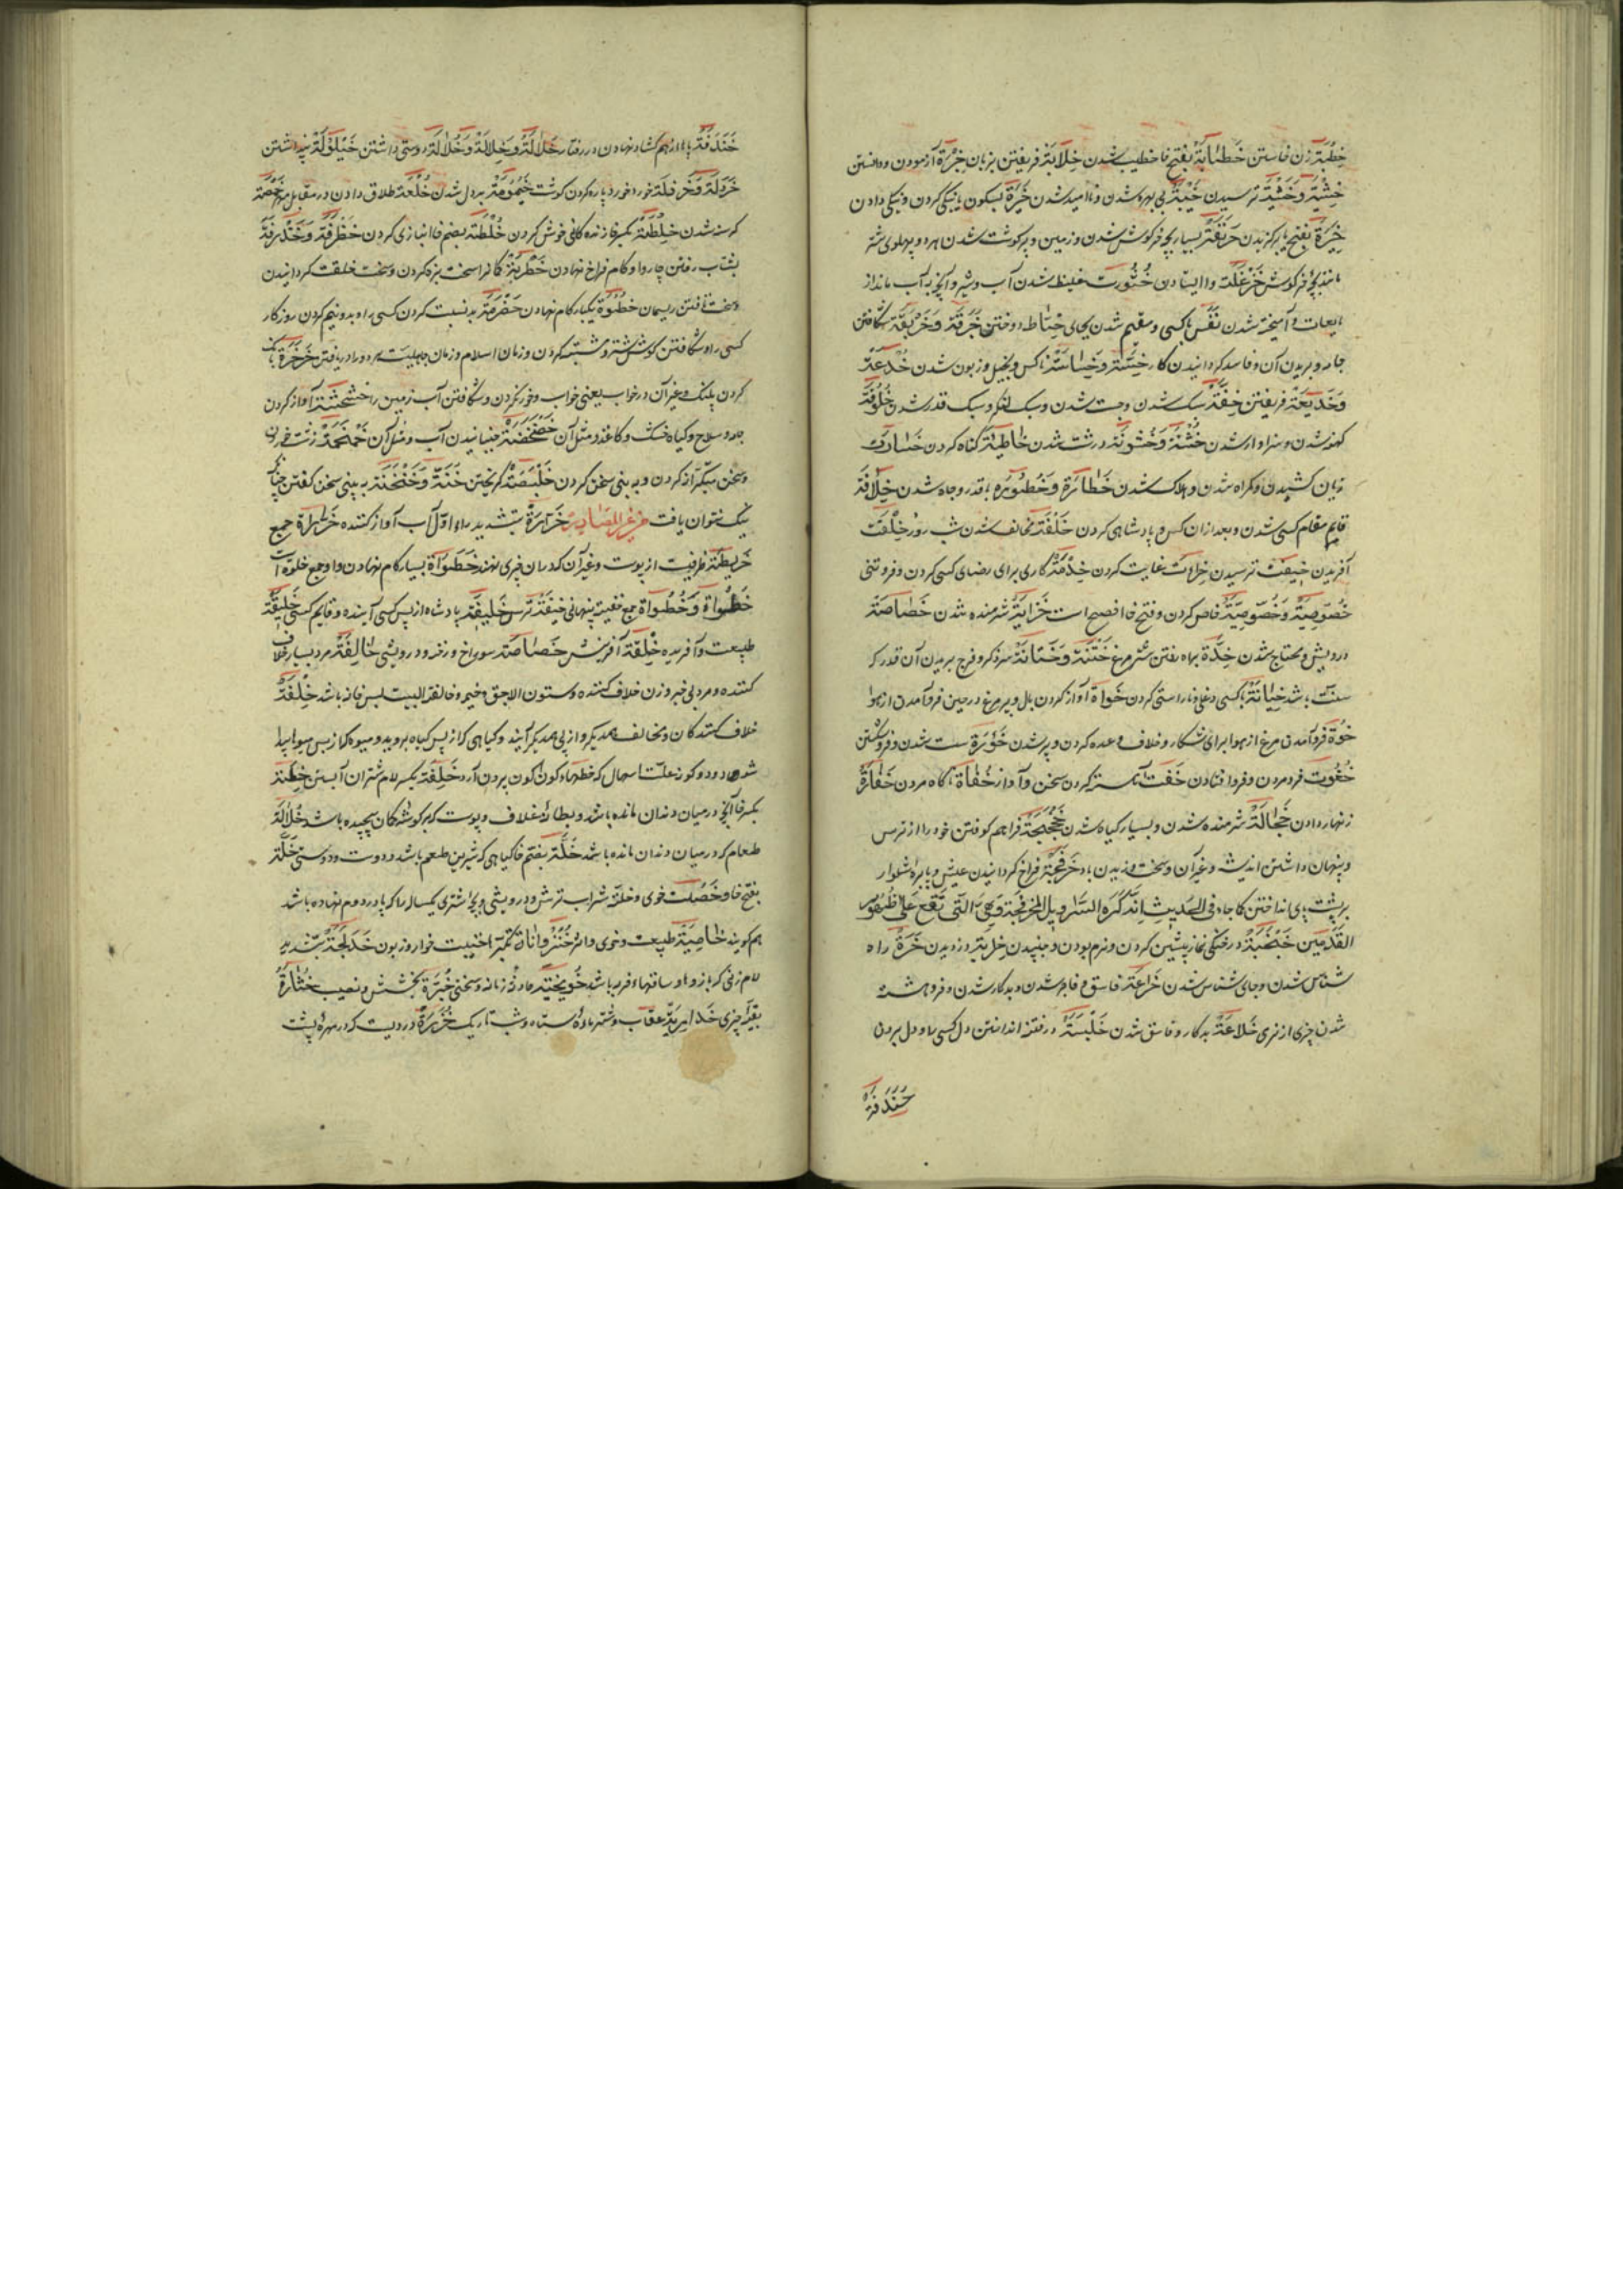 خِطْبَة زن خواستن خَطَابَة بفتح خا خطیب شدن خِلَابَة فریفتن بزبان خِبْرَة آزمودن و دانستن
خِشْیَة وَخَشْیَة ترسیدن خَیْبَة بی بهره شدن و ناامید شدن خَیْرَة بسکون یا نیکی کردن و نیکی دادن
خِیَرَة بفتح یا برگزیدن خَرْنَقَة بسیار بچه خرگوش شدن زمین و پر گوشت شدن هر دو پهلوی شتر
مانند بچه خرگوش خَزْعَلَة وا ایستادن خُثُورَت غلیظ شدن آب و شیر و آنچه به آب ماند از
مایعات و آمیخته شدن نفس کسی و مقیم شدن بجای خِیَاطَة دوختن خَرْقَة وَخَرِیقَة شکافتن
جامه و بریدن آن و فاسد گردانیدن کار خِسَّة وَخِسَاسَة ناکس و بخیل و زبون شدن خُدْعَة
وَخَدِیعَة فریفتن خِفَّة سبک شدن و چست شدن و سبک لنگر و سبک قدر شدن خُلُوقَة
کهنه شدن و سزاوار شدن خُشْنَة وَخُشُونَة درشت شدن خَاطِئَة گناه کردن خَسَارَت
زیان کشیدن و گمراه شدن و هلاک شدن خَطَارَة وَخُطُورَه با قدر و جاه شدن خِلَافَة
قایم مقام کسی شدن و بعد از ان کس پادشاهی کردن خِلْفَة مخالف شدن شب و روز خِلْقَت
آفریدن خِیفَت ترسیدن خِدْمَة کاری برای رضای کسی کردن و فروتنی
خُصُوصِیَّة وَخَصُوصِیَّة خاص کردن و فتح خا افصح است خَزَایَة شرمنده شدن خَصَاصَة
درویش و محتاج شدن خِتْنَة وَخِتَانَة سر ذکر و فرج بریدن آن قدر که
سنت باشد خِیَانَة با کسی دغلی و ناراستی کردن خَوَاة آواز کردن بال و پر مرغ در حین فرو آمدن از هوا
خَوَّة فرو آمدن مرغ از هوا برای شکار و خلاف وعده کردن و پر شدن خَوْرَة سست شدن و فرو شکستن
خُفُوت فرو مردن و فرو افتادن خَفْت آهسته کردن سخن و آواز خُفَاة ناگاه مردن خَفَارَة
زنهار دادن خَجَالَة شرمنده شدن و بسیار گیاه شدن خَجْخَجَة فراهم کوفتن خود را از ترس
و پنهان داشتن اندیشه و غیر آن و سخت وزیدن باد خَرْفَجَة فراخ گردانیدن عیش و پایهای شلوار
بر پشت پای انداختن کما جاء فی الحدیث اِنَّهُ کَرِهَ السَّرَاوِیلَ المُخَرْفَجَة وَهِیَ الَّتِی تَقَعُ عَلَی ظُهُورِ
القَدَمَیْنِ خَرَّة راه
شناس شدن و جای شناس شدن خَرَاعَة فاسق و فاجر شدن و بدکار شدن و فروهشته
شدن چیزی از نرمی خَلَاعَة بدکار و فاسق شدن خَلْبَسَة در فتنه انداختن دل کسی را و دل بردن
خَنْدَفَة
خَنْدَفَة پا را از هم گشاد نهادن در رفتار خَلَالَة وَخِلَالَة وَخُلَالَة دوستی داشتن خَیْلُولَة پنداشتن
خَرْدَلَة وَخَرْذَلَة خورد خورد پاره کردن گوشت خَیْمُومَة بد دل شدن خُلْعَة طلاق دادن در مقابل مهر مَخْمَصَة
گرسنه شدن خُلْطَة بضم خا انبازی کردن خَظْرَفَة وَخَذْرَفَة
بشتاب رفتن چاروا و گام فراخ نهادن کمانرا سخت بزه کردن و سخت خلقت گردانیدن
و سخت تافتن ریسمان خَطْوَة یکبار گام نهادن خَضْرَمَة بد نسبت کردن کسی را و بدو نیم کردن روزگار
کسی را و شکافتن گوش شتر و مشتبه کردن و زمان اسلام و زمان جاهلیت هر دو را دریافتن خَرْخَرَة بانگ
کردن پلنگ و غیر آن در خواب یعنی خواب و خور کردن و شکافتن آب زمین را خَشْخَشَة آواز کردن
جامه و سلاح و گیاه خشک و کاغذ و مثل آن خَضْخَضَة جنبانیدن آب و مثل آن خَمْخَمَة زشت خوردن
و سخن متکبرانه کردن و به بینی سخن کردن خَلْبَصَة گریختن خَنَّة وَخَنْخَنَة به بینی سخن گفتن چنانکه
نیک نتوان یافت من غیر المصادر خَرَّارَة بتشدید راء اول آب آواز کننده خَرَائِطَة جمع
خَرِیطَة ظرفیست از پوست و غیر آن که در ان چیزی نهند خَطَوَاة بسیار گام نهادن و او جمع خطوة است
خُطُوَاة وَخُطْوَاة جمع خُفْیَة پنهانی خِیفَة ترس خَلِیفَة پادشاه از پس کسی آینده و قایم کسی خَلِیقَة
طبیعت و آفریده خِلْقَة آفرینش خَصَاصَة سوراخ و رخنه و درویشی خَالِفَة مرد بسیار خلاف
کننده و مرد بی خیر و زن خلاف کننده و ستون خیمه و خالفة البیت پس خانه باشد خِلْفَة
خلاف کنندگان و مخالف همدیگر و از پی همدیگر آیند و گیاهی که از پس گیاه بروید و میوه که از پس میوه پیدا
شود کوناکون بیرون آرد خَلِفَة بکسر لام شتران آبستن خِلَّة
بکسر خا آنچه در میان دندان مانده باشد و بطانه غلاف و پوست که بر گوشه کمان پیچیده باشد خُلَالَة
طعام که در میان دندان مانده باشد خُلَّة بضم خا گیاهی که شیرین طعم باشد و دوست و دوستی خَلَّة
بفتح خا و خَصْلَت خوی و خلة شراب ترش و درویشی و بچه اشتری یکساله را که پا در دوم نهاده باشد
هم گویند خَاصِیَّة طبیعت و خوی و اثر تکبر خوار و زبون خَدَلَّجَة بتشدید
لام زنی که بازوها و ساقهاء فربه باشد خُبْزَة بخشش و نصیب خُثَارَة
بقیه چیزی خُدَارِیَّة عقاب و شتر ماده سیاه و شب تاریک خُزَرَة دردیست که در مهره پشت